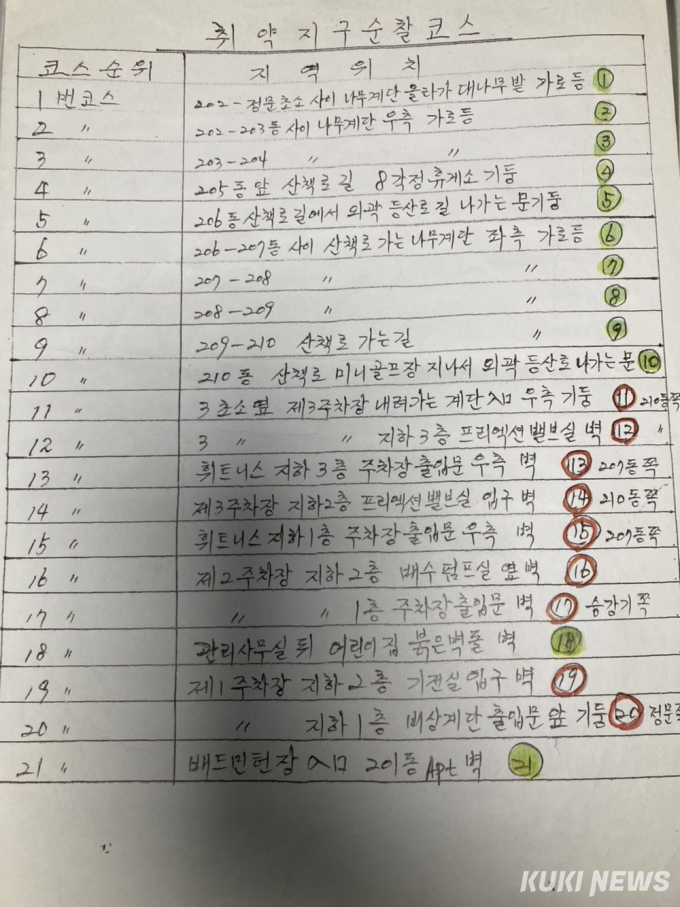 취약지구순찰코스
코스순위 지역위치
1번코스 202-정문초소 사이 나무계단 올라가 대나무밭 가로등 ①
2 〃 202-203동 사이 나무계단 우측 가로등 ②
3 〃 203-204 〃 〃 ③
4 〃 205동 앞 산책로길 8각정휴게소 기둥 ④
5 〃 206동 산책로길에서 외곽 등산로길 나가는 문기둥 ⑤
6 〃 206-207동 사이 산책로 가는 나무계단 좌측 가로등 ⑥
7 〃 207-208 〃 〃 ⑦
8 〃 208-209 〃 〃 ⑧
9 〃 209-210 산책로 가는길 〃 ⑨
10 〃 210동 산책로 미니골프장 지나서 외곽 등산로 나가는 문 ⑩
11 〃 3초소옆 제3주차장 내려가는 계단 入口 우측 기둥 ⑪ 210동쪽
12 〃 3 〃 〃 지하3층 프리엑션밸브실 벽 ⑫ 〃
13 〃 휘트니스 지하3층 주차장출입문 우측 벽 ⑬ 207동쪽
14 〃 제3주차장 지하2층 프리엑션밸브실 입구 벽 ⑭ 210동쪽
15 〃 휘트니스 지하1층 주차장출입문 우측 벽 ⑮ 207동쪽
16 〃 제2주차장 지하2층 배수펌프실 옆벽 ⑯
17 〃 〃 〃 1층 주차장출입문 벽 ⑰ 승강기쪽
18 〃 관리사무실 뒤 어린이집 붉은벽돌 벽 ⑱
19 〃 제1주차장 지하2층 기전실 입구 벽 ⑲
20 〃 〃 지하1층 비상계단 출입문 앞 기둥 ⑳ 정문쪽
21 〃 배드민턴장 入口 201동 Apt 벽 ㉑
KUKI NEWS